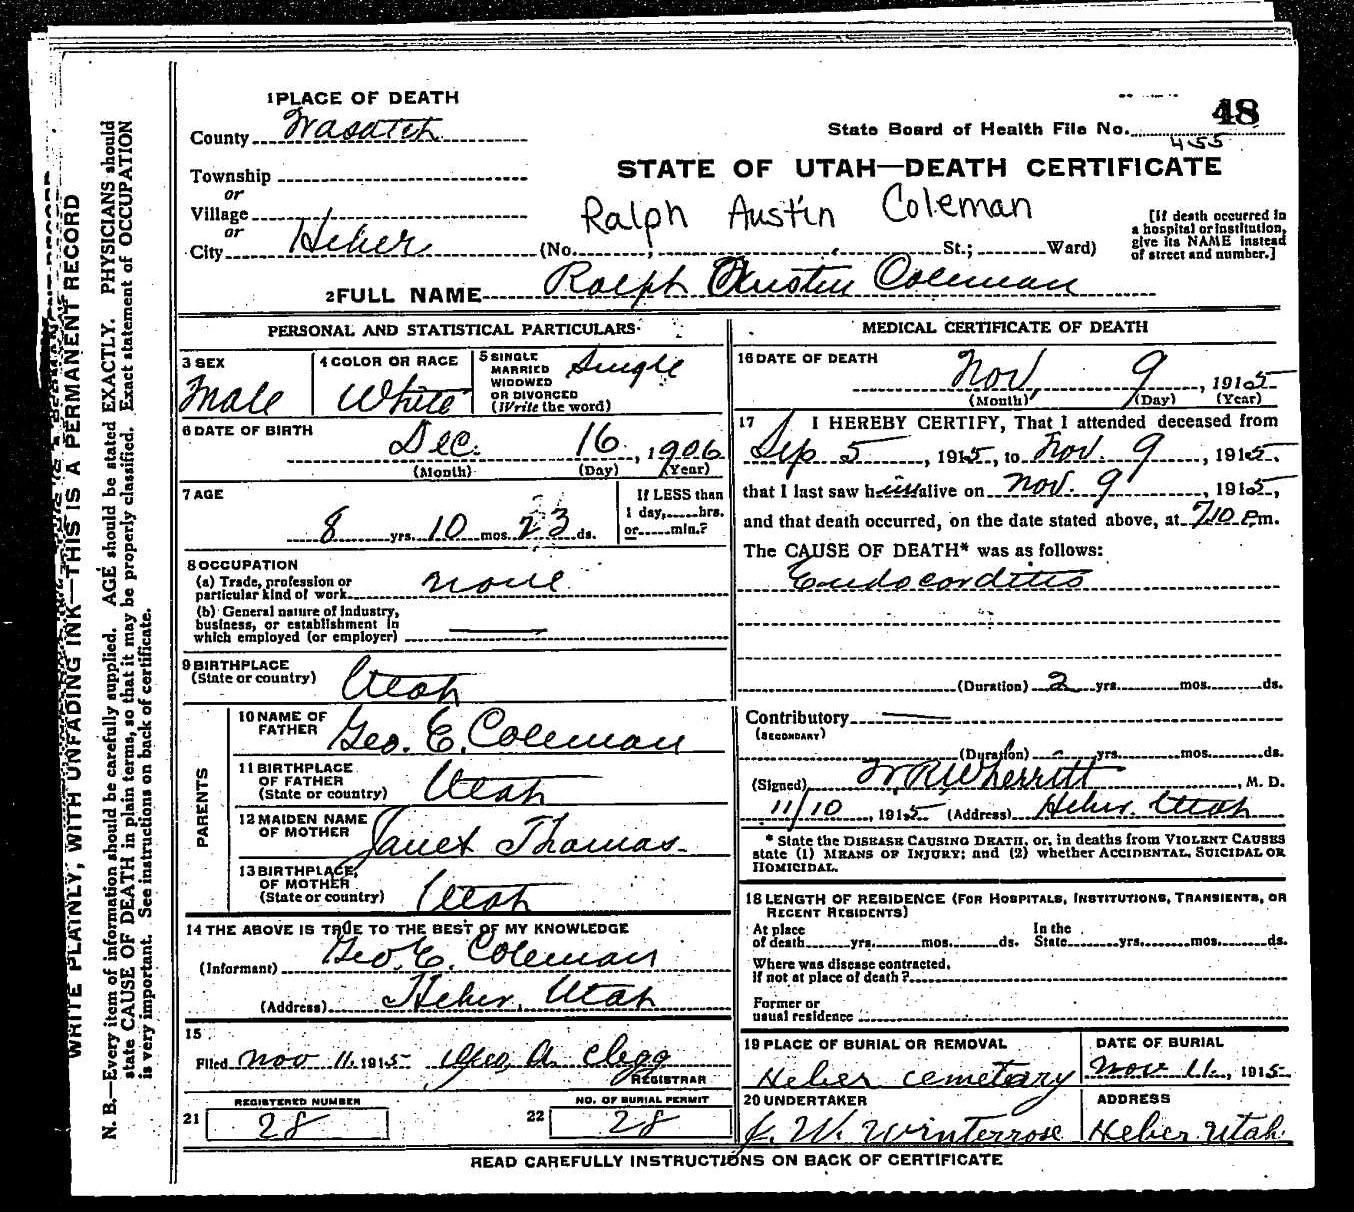 1 PLACE OF DEATH
County Wasatch
Township
or
Village
or
City Heber
48
State Board of Health File No.
455
STATE OF UTAH—DEATH CERTIFICATE
Ralph Austin Coleman
(No. , St.; Ward)
[If death occurred in
a hospital or institution,
give its NAME instead
of street and number.]
2 FULL NAME Ralph Austin Coleman
PERSONAL AND STATISTICAL PARTICULARS
3 SEX
Male
4 COLOR OR RACE
White
5 SINGLE
MARRIED
WIDOWED
OR DIVORCED
(Write the word)
Single
6 DATE OF BIRTH
Dec. 16, 1906
(Month) (Day) (Year)
7 AGE
8 yrs. 10 mos. 23 ds.
If LESS than
1 day, hrs.
or min.?
8 OCCUPATION
(a) Trade, profession or
particular kind of work none
(b) General nature of Industry,
business, or establishment in
which employed (or employer)
9 BIRTHPLACE
(State or country) Utah
PARENTS
10 NAME OF
FATHER Geo. E. Coleman
11 BIRTHPLACE
OF FATHER
(State or country) Utah
12 MAIDEN NAME
OF MOTHER Janet Thomas
13 BIRTHPLACE,
OF MOTHER
(State or country) Utah
14 THE ABOVE IS TRUE TO THE BEST OF MY KNOWLEDGE
(Informant) Geo. E. Coleman
(Address) Heber, Utah
15
Filed Nov 11, 1915 Geo. A. Clegg
REGISTRAR
REGISTERED NUMBER
21 28
NO. OF BURIAL PERMIT
22 28
MEDICAL CERTIFICATE OF DEATH
16 DATE OF DEATH
Nov. 9, 1915
(Month) (Day) (Year)
17 I HEREBY CERTIFY, That I attended deceased from
Sep 5, 1915, to Nov. 9, 1915,
that I last saw him alive on Nov. 9, 1915,
and that death occurred, on the date stated above, at 7 10 P.m.
The CAUSE OF DEATH* was as follows:
Endocarditis
(Duration) 2 yrs. mos. ds.
Contributory
(SECONDARY)
(Duration) yrs. mos. ds.
(Signed) W R Wherritt, M. D.
11/10, 1915 (Address) Heber, Utah
* State the DISEASE CAUSING DEATH, or, in deaths from VIOLENT CAUSES
state (1) MEANS OF INJURY; and (2) whether ACCIDENTAL, SUICIDAL OR
HOMICIDAL.
18 LENGTH OF RESIDENCE (FOR HOSPITALS, INSTITUTIONS, TRANSIENTS, OR
RECENT RESIDENTS)
At place In the
of death yrs. mos. ds. State yrs. mos. ds.
Where was disease contracted,
if not at place of death?
Former or
usual residence
19 PLACE OF BURIAL OR REMOVAL
Heber cemetary
DATE OF BURIAL
Nov 11, 1915
20 UNDERTAKER
J. W. Winterrose
ADDRESS
Heber Utah
READ CAREFULLY INSTRUCTIONS ON BACK OF CERTIFICATE
WRITE PLAINLY, WITH UNFADING INK—THIS IS A PERMANENT RECORD
N. B.—Every item of information should be carefully supplied. AGE should be stated EXACTLY. PHYSICIANS should
state CAUSE OF DEATH in plain terms, so that it may be properly classified. Exact statement of OCCUPATION
is very important. See instructions on back of certificate.